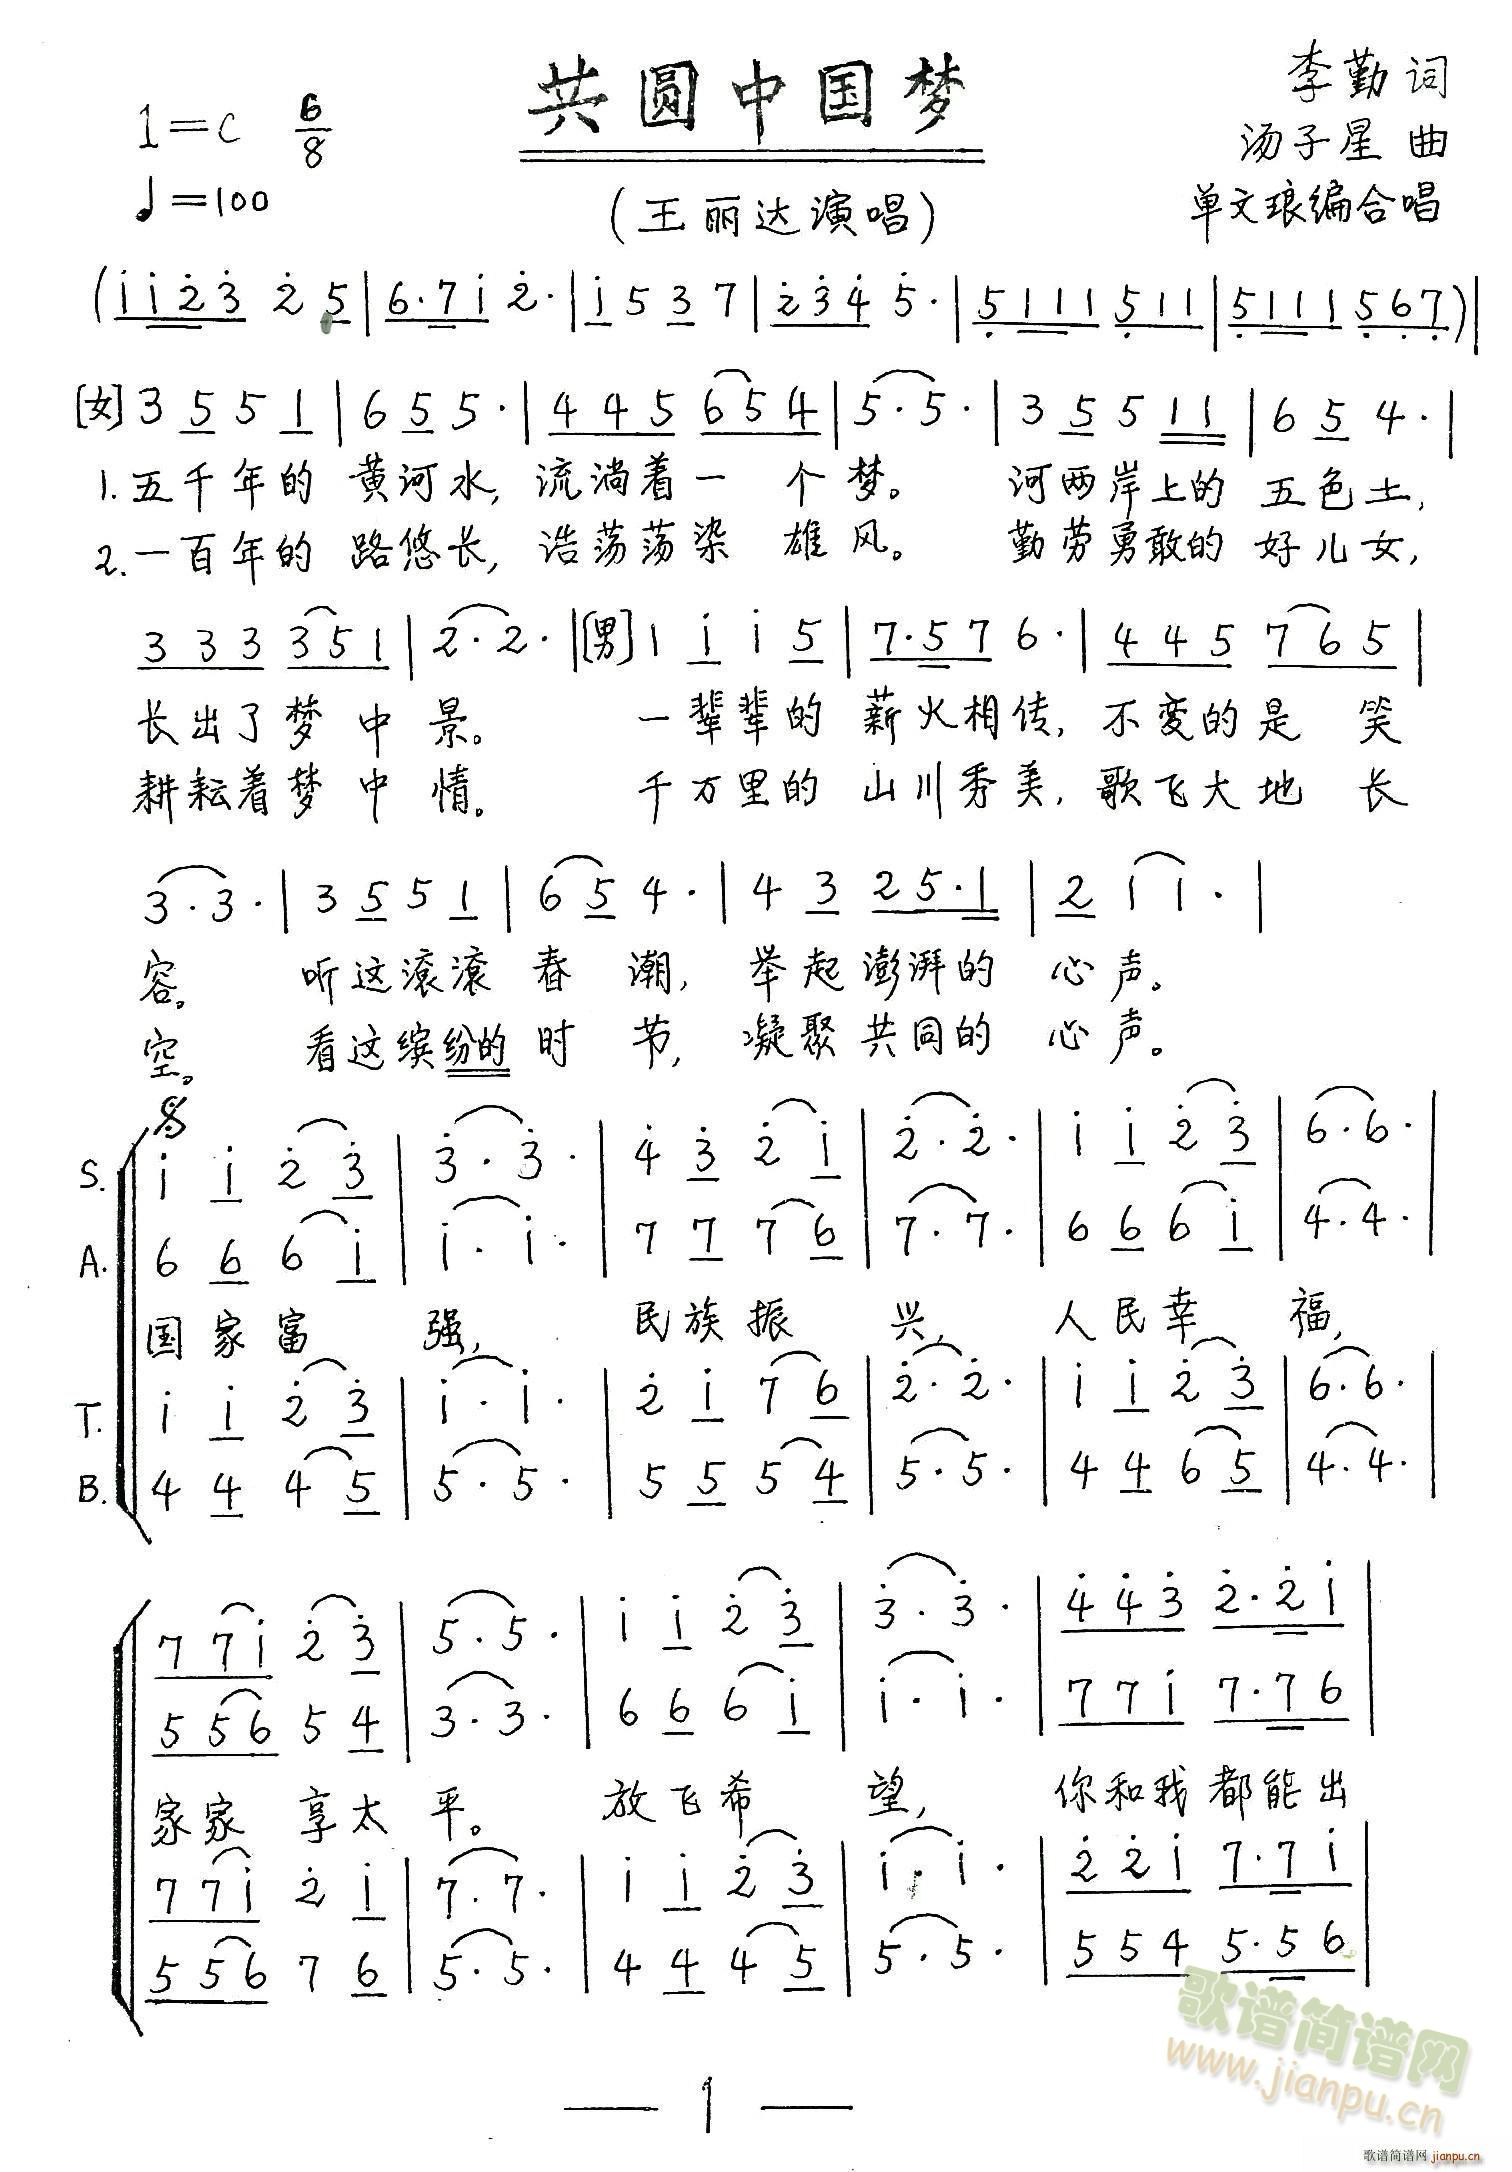 共圆中国梦
李勤词
1=C 6/8
汤子星 曲
♩=100
(王丽达演唱)
单文琅编合唱
(i i 2̇ 3̇ 2̇ 5 | 6·7 i 2̇· | i 5 3 7 | 2̇ 3̇ 4̇ 5̇· | 5̣ 1 1 1 5̣ 1 1 | 5̣ 1 1 1 5̣ 6̣ 7̣) |
[女] 3 5 5 1 | 6 5 5· | 4 4 5 6 5 4 | 5·5· | 3 5 5 1 1 | 6 5 4· |
1. 五千年的 黄河水, 流淌着一 个梦。 河两岸上的 五色土,
2. 一百年的 路悠长, 浩荡荡染 雄风。 勤劳勇敢的 好儿女,
3 3 3 3 5 1 | 2·2· | [男] 1 i i 5 | 7·5 7 6· | 4 4 5 7 6 5 |
长出了梦 中 景。 一辈辈的 薪火相传, 不变的是 笑
耕耘着梦 中 情。 千万里的 山川秀美, 歌飞大地 长
3·3· | 3 5 5 1 | 6 5 4· | 4 3 2 5·1 | 2 1 1· |
容。 听这滚滚 春 潮, 举起澎湃的 心声。
空。 看这缤纷的 时 节, 凝聚共同的 心声。
S. i i 2̇ 3̇ | 3̇·3̇· | 4̇ 3̇ 2̇ i | 2̇·2̇· | i i 2̇ 3̇ | 6·6· |
A. 6 6 6 i | i·i· | 7 7 7 6 | 7·7· | 6 6 6 i | 4·4· |
国家富 强, 民族振 兴, 人民幸 福,
T. i i 2̇ 3̇ | i·i· | 2̇ i 7 6 | 2̇·2̇· | i i 2̇ 3̇ | 6·6· |
B. 4 4 4 5 | 5·5· | 5 5 5 4 | 5·5· | 4 4 6 5 | 4·4· |
7 7 i 2̇ 3̇ | 5·5· | i i 2̇ 3̇ | 3̇·3̇· | 4̇ 4̇ 3̇ 2̇·2̇ i |
5 5 6 5 4 | 3·3· | 6 6 6 i | i·i· | 7 7 i 7·7 6 |
家家 享太 平。 放飞希 望, 你和我都能出
7 7 i 2̇ i | 7·7· | i i 2̇ 3̇ | i·i· | 2̇ 2̇ i 7·7 i |
5 5 6 7 6 | 5·5· | 4 4 4 5 | 5·5· | 5 5 4 5·5 6 |
歌谱简谱网
www.jianpu.cn
— 1 —
歌谱简谱网 jianpu.cn